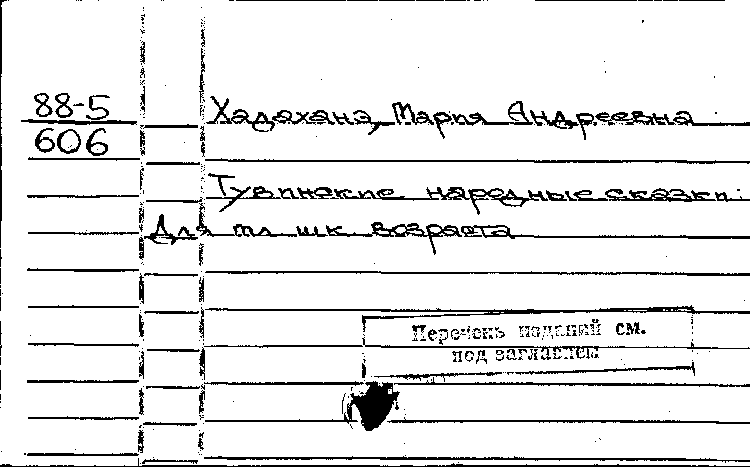 88-5
606
Хадаханэ, Мария Андреевна
Тувинские народные сказки:
Для мл шк возраста
Перечень изданий см.
под заглавием